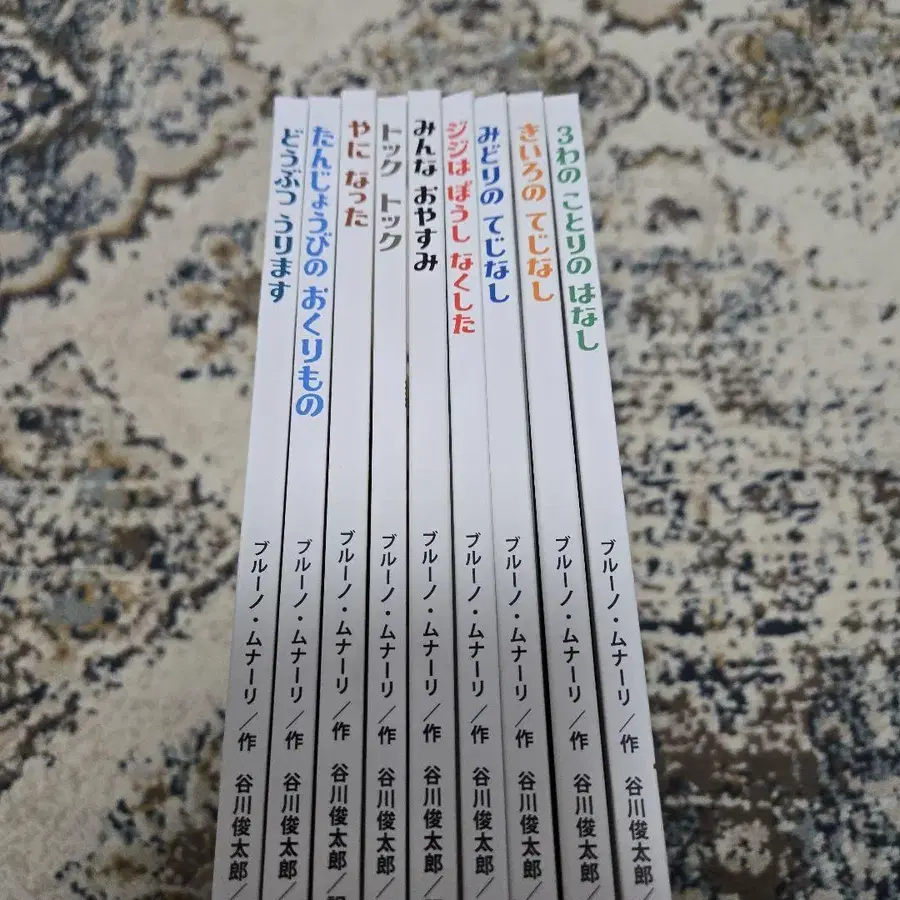 どうぶつ うります
ブルーノ・ムナーリ/作 谷川俊太郎/
たんじょうびの おくりもの
ブルーノ・ムナーリ/作 谷川俊太郎/
やに なった
ブルーノ・ムナーリ/作 谷川俊太郎/訳
トック トック
ブルーノ・ムナーリ/作 谷川俊太郎/
みんな おやすみ
ブルーノ・ムナーリ/作 谷川俊太郎/
ジジは ぼうし なくした
ブルーノ・ムナーリ/作 谷川俊太郎/
みどりの てじなし
ブルーノ・ムナーリ/作 谷川俊太郎/
きいろの てじなし
ブルーノ・ムナーリ/作 谷川俊太郎/
3わの ことりの はなし
ブルーノ・ムナーリ/作 谷川俊太郎/